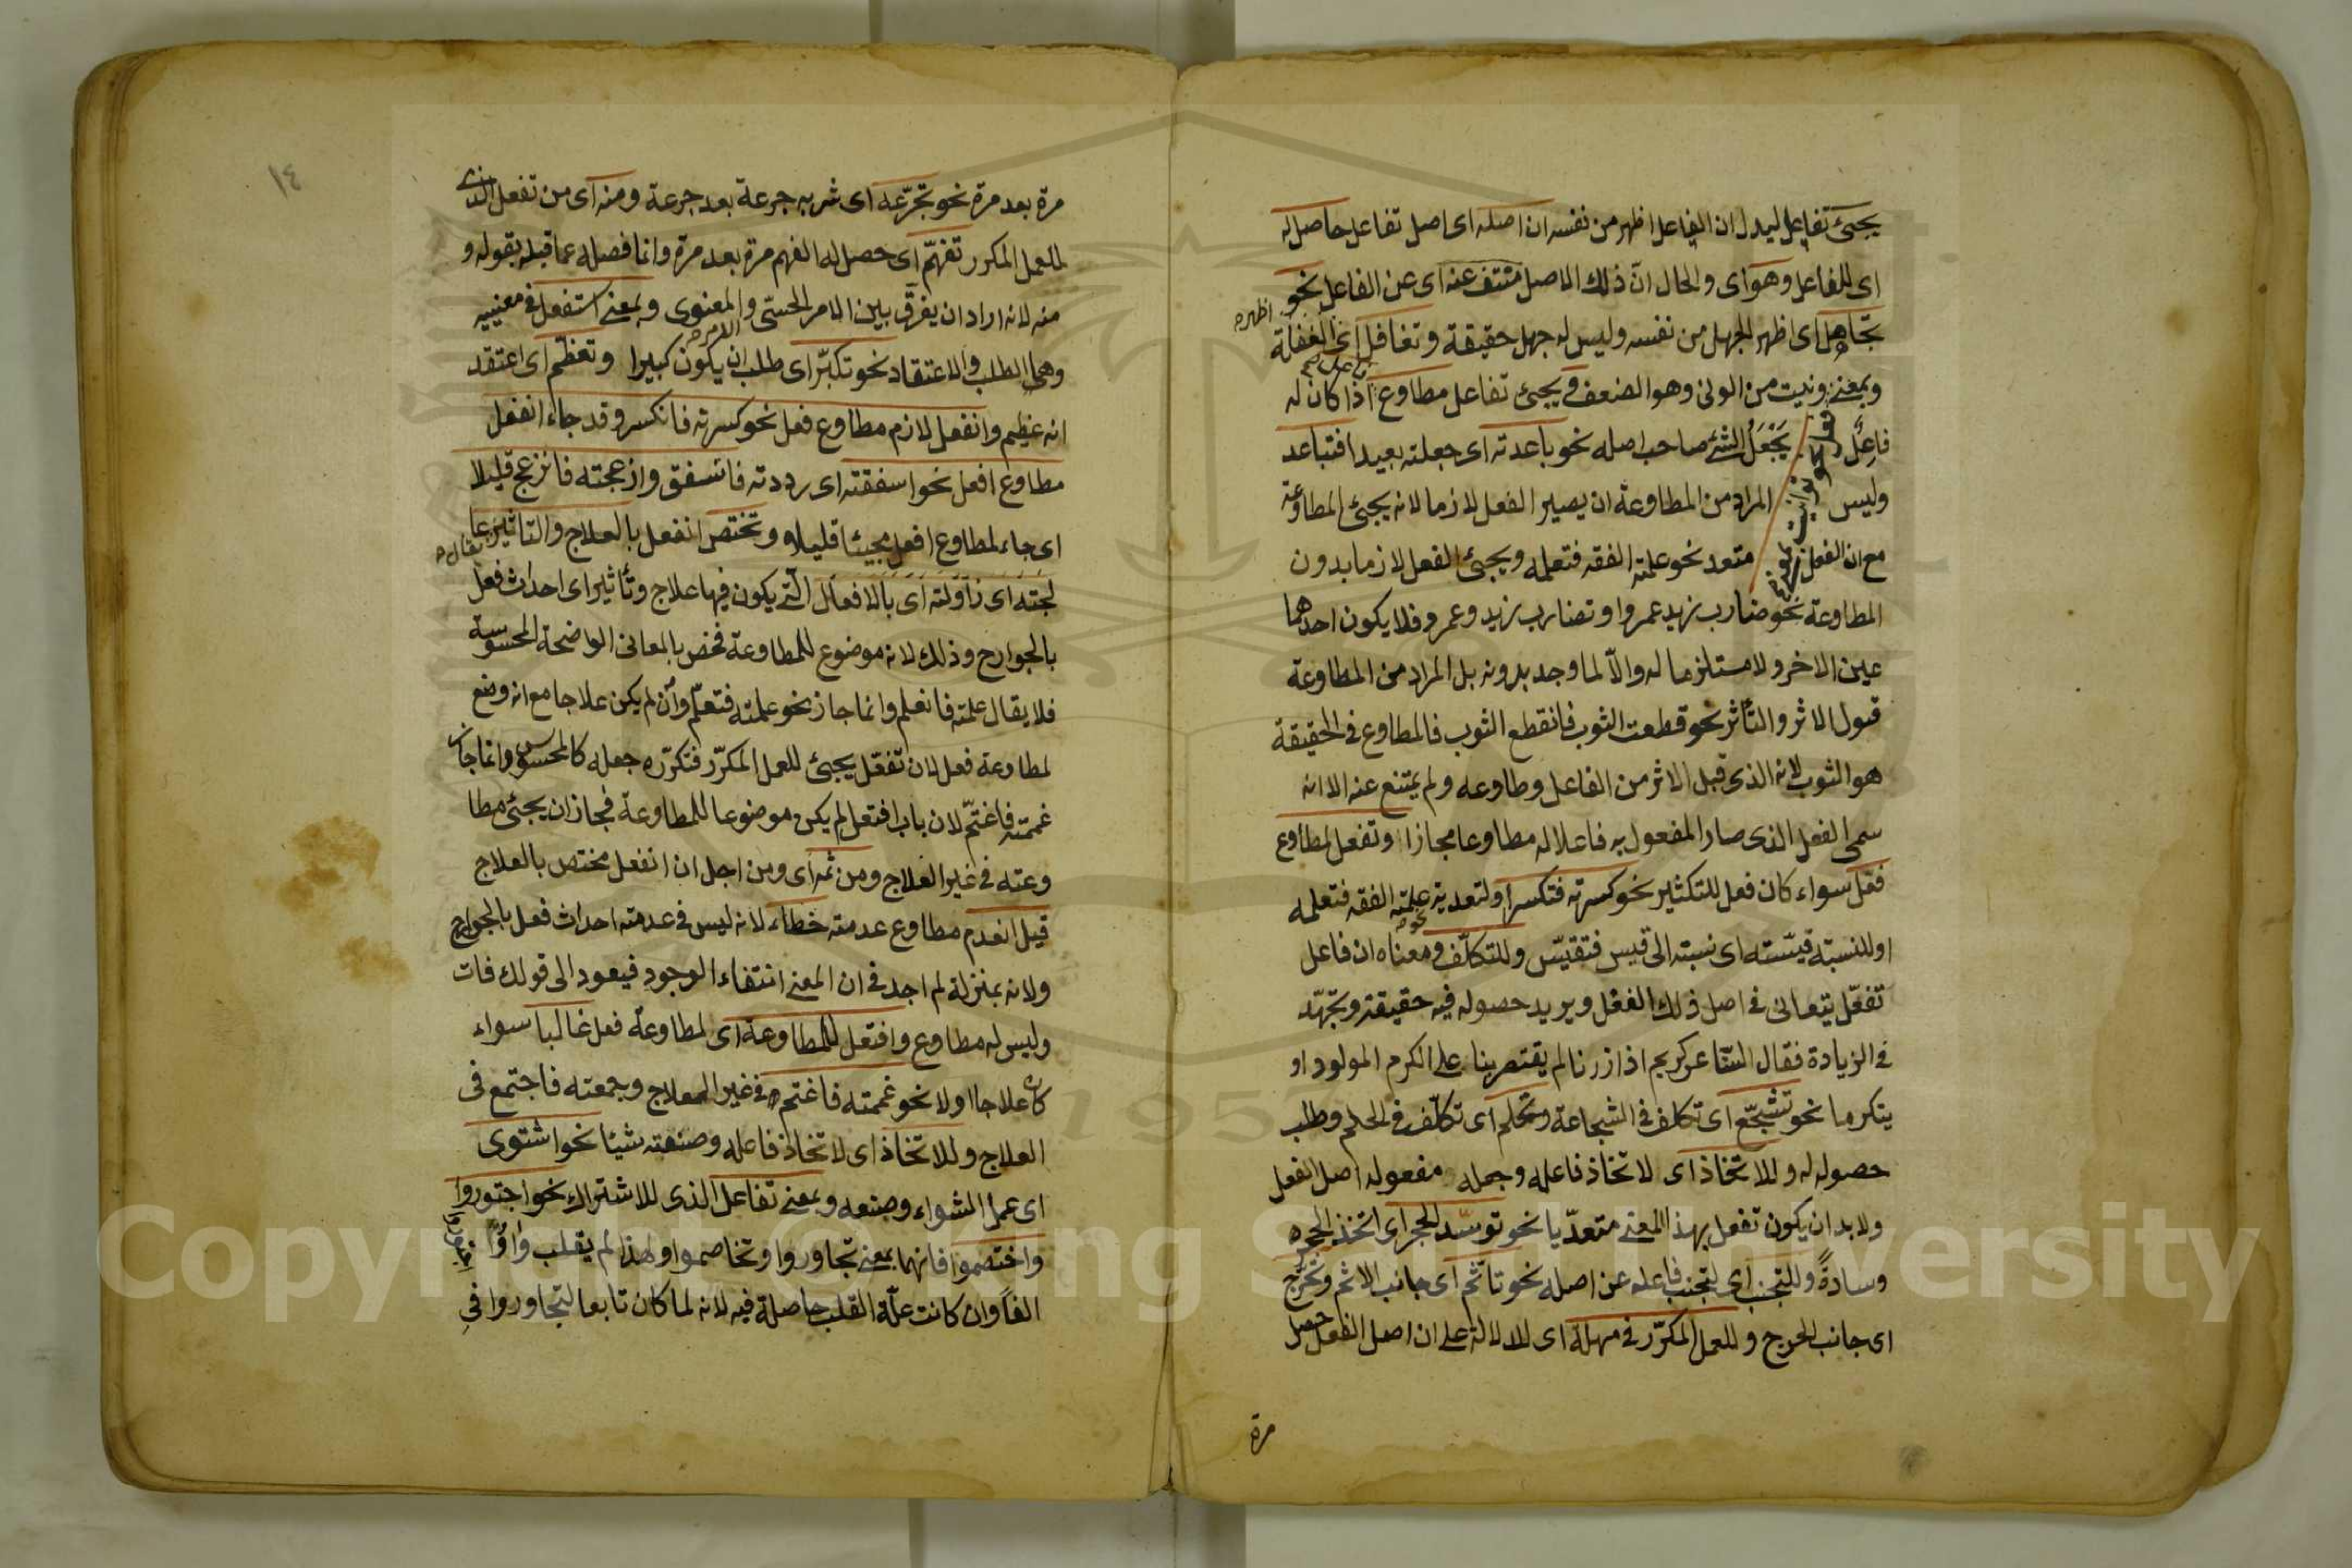 يجيئ تفاعل ليدل ان الفاعل اظهر من نفسه ان اصله اى اصل تفاعل حاصل له
اى للفاعل وهو اى والحال انّ ذلك الاصل منتف عنه اى عن الفاعل نحو
تجاهل اى اظهر الجهل من نفسه وليس له جهل حقيقة وتغافل اى الغفلة
اظهره
وبمعنى ونيت من الونى وهو الضعف ويجيئ تفاعل مطاوع اذا كان له
فاعل يجعل الشئ صاحب اصله نحو باعدته اى جعلته بعيدا فتباعد
وليس المراد من المطاوعة ان يصير الفعل لازما لانه يجيئ المطاوعة
مع ان الفعل متعد نحو علمته الفقه فتعلمه ويجيئ الفعل لازما بدون
المطاوعة نحو ضارب زيد عمروا وتضارب زيد وعمرو فلا يكون احدهما
عين الاخر ولا مستلزما له والّا لما وجد بدونه بل المراد من المطاوعة
قبول الاثر والتأثر نحو قطعت الثوب فانقطع الثوب فالمطاوع فى الحقيقة
هو الثوب لانه الذى قبل الاثر من الفاعل وطاوعه ولم يمتنع عنه الا انه
سمى الفعل الذى صار المفعول به فاعلا له مطاوعا مجازا وتفعل لمطاوع
فعّل سواء كان فعل للتكثير نحو كسرته فتكسر او لتعدية علمته الفقه فتعلمه
نحو
او للنسبة قيّسته اى نسبته الى قيس فتقيّس وللتكلّف ومعناه ان فاعل
تفعّل يتعانى فى اصل ذلك الفعل ويريد حصوله فيه حقيقة وتجهّد
فى الزيادة فقال الشاعر كريم اذا زرنا لم يقتصر بنا على الكرم المولود او
يتكرما نحو تشجّع اى تكلف فى الشجاعة وتحلم اى تكلّف فى الحلم وطلب
حصوله له وللاتخاذ اى لاتخاذ فاعله وجعله مفعوله اصل الفعل
ولابد ان يكون تفعل بهذا المعنى متعدّيا نحو توسّد الحجر اى اتخذ الحجر
وسادةً وللتجنب اى لتجنب فاعله عن اصله نحو تاثّم اى جانب الاثم وتحرّج
اى جانب الحرج وللعمل المكرّر فى مهلة اى للدلالة على ان اصل الفعل حصل
مرة
١٤
مرة بعد مرة نحو تجرّعه اى شربه جرعة بعد جرعة ومنه اى من تفعل الذى
للعمل المكرر تفهّم اى حصل له الفهم مرة بعد مرة وانما فصله عما قبله بقوله و
منه لانه اراد ان يفرّق بين الامر الحسّى والمعنوى وبمعنى استفعل فى معنييه
وهى الطلب والاعتقاد نحو تكبّر اى طلب ان يكون كبيرا وتعظّم اى اعتقد
انه عظيم وانفعل لازم مطاوع فعل نحو كسرته فانكسر وقد جاء انفعل
مطاوع افعل نحو اسفقته اى رددته فانسفق وازعجته فانزعج قليلا
اى جاء لمطاوع افعل مجيئا قليلا وتختص انفعل بالعلاج والتاثير
لجته اى زاولته اى بالافعال الّتى يكون فيها علاج وتأثير اى احداث فعل
بالجوارح وذلك لانه موضوع للمطاوعة فخص بالمعانى الواضحة المحسوسة
فلا يقال علمته فانعلم وانما جاز نحو علمته فتعلّم وان لم يكن علاجا مع انه وضع
لمطاوعة فعل لان تفعّل يجيئ للعمل المكرّر فتكرّره جعله كالمحسوس وانما جاز
غممته فاغتمّ لان باب افتعل لم يكن موضوعا للمطاوعة فجاز ان يجيئ مطا
وعته فى غير العلاج ومن ثمه اى ومن اجل ان انفعل مختص بالعلاج
قيل انعدم مطاوع عدمته خطاء لانه ليس فى عدمته احداث فعل بالجوارح
ولانه بمنزلة لم اجد فى ان المعنى انتفاء الوجود فيعود الى قولك فات
وليس له مطاوع وافتعل للمطاوعة اى لمطاوعة فعل غالبا سواء
كان علاجا اولا نحو غممته فاغتم فى غير العلاج وجمعته فاجتمع فى
العلاج وللاتخاذ اى لاتخاذ فاعله وصنعته شيئا نحو اشتوى
اى عمل الشواء وصنعه وبمعنى تفاعل الذى للاشتراك نحو اجتوروا
واختصموا فانهما بمعنى تجاوروا وتخاصموا ولهذا لم يقلب واوُ
الفاً وان كانت علّة القلب حاصلة فيه لانه لما كان تابعا لتجاوروا فى